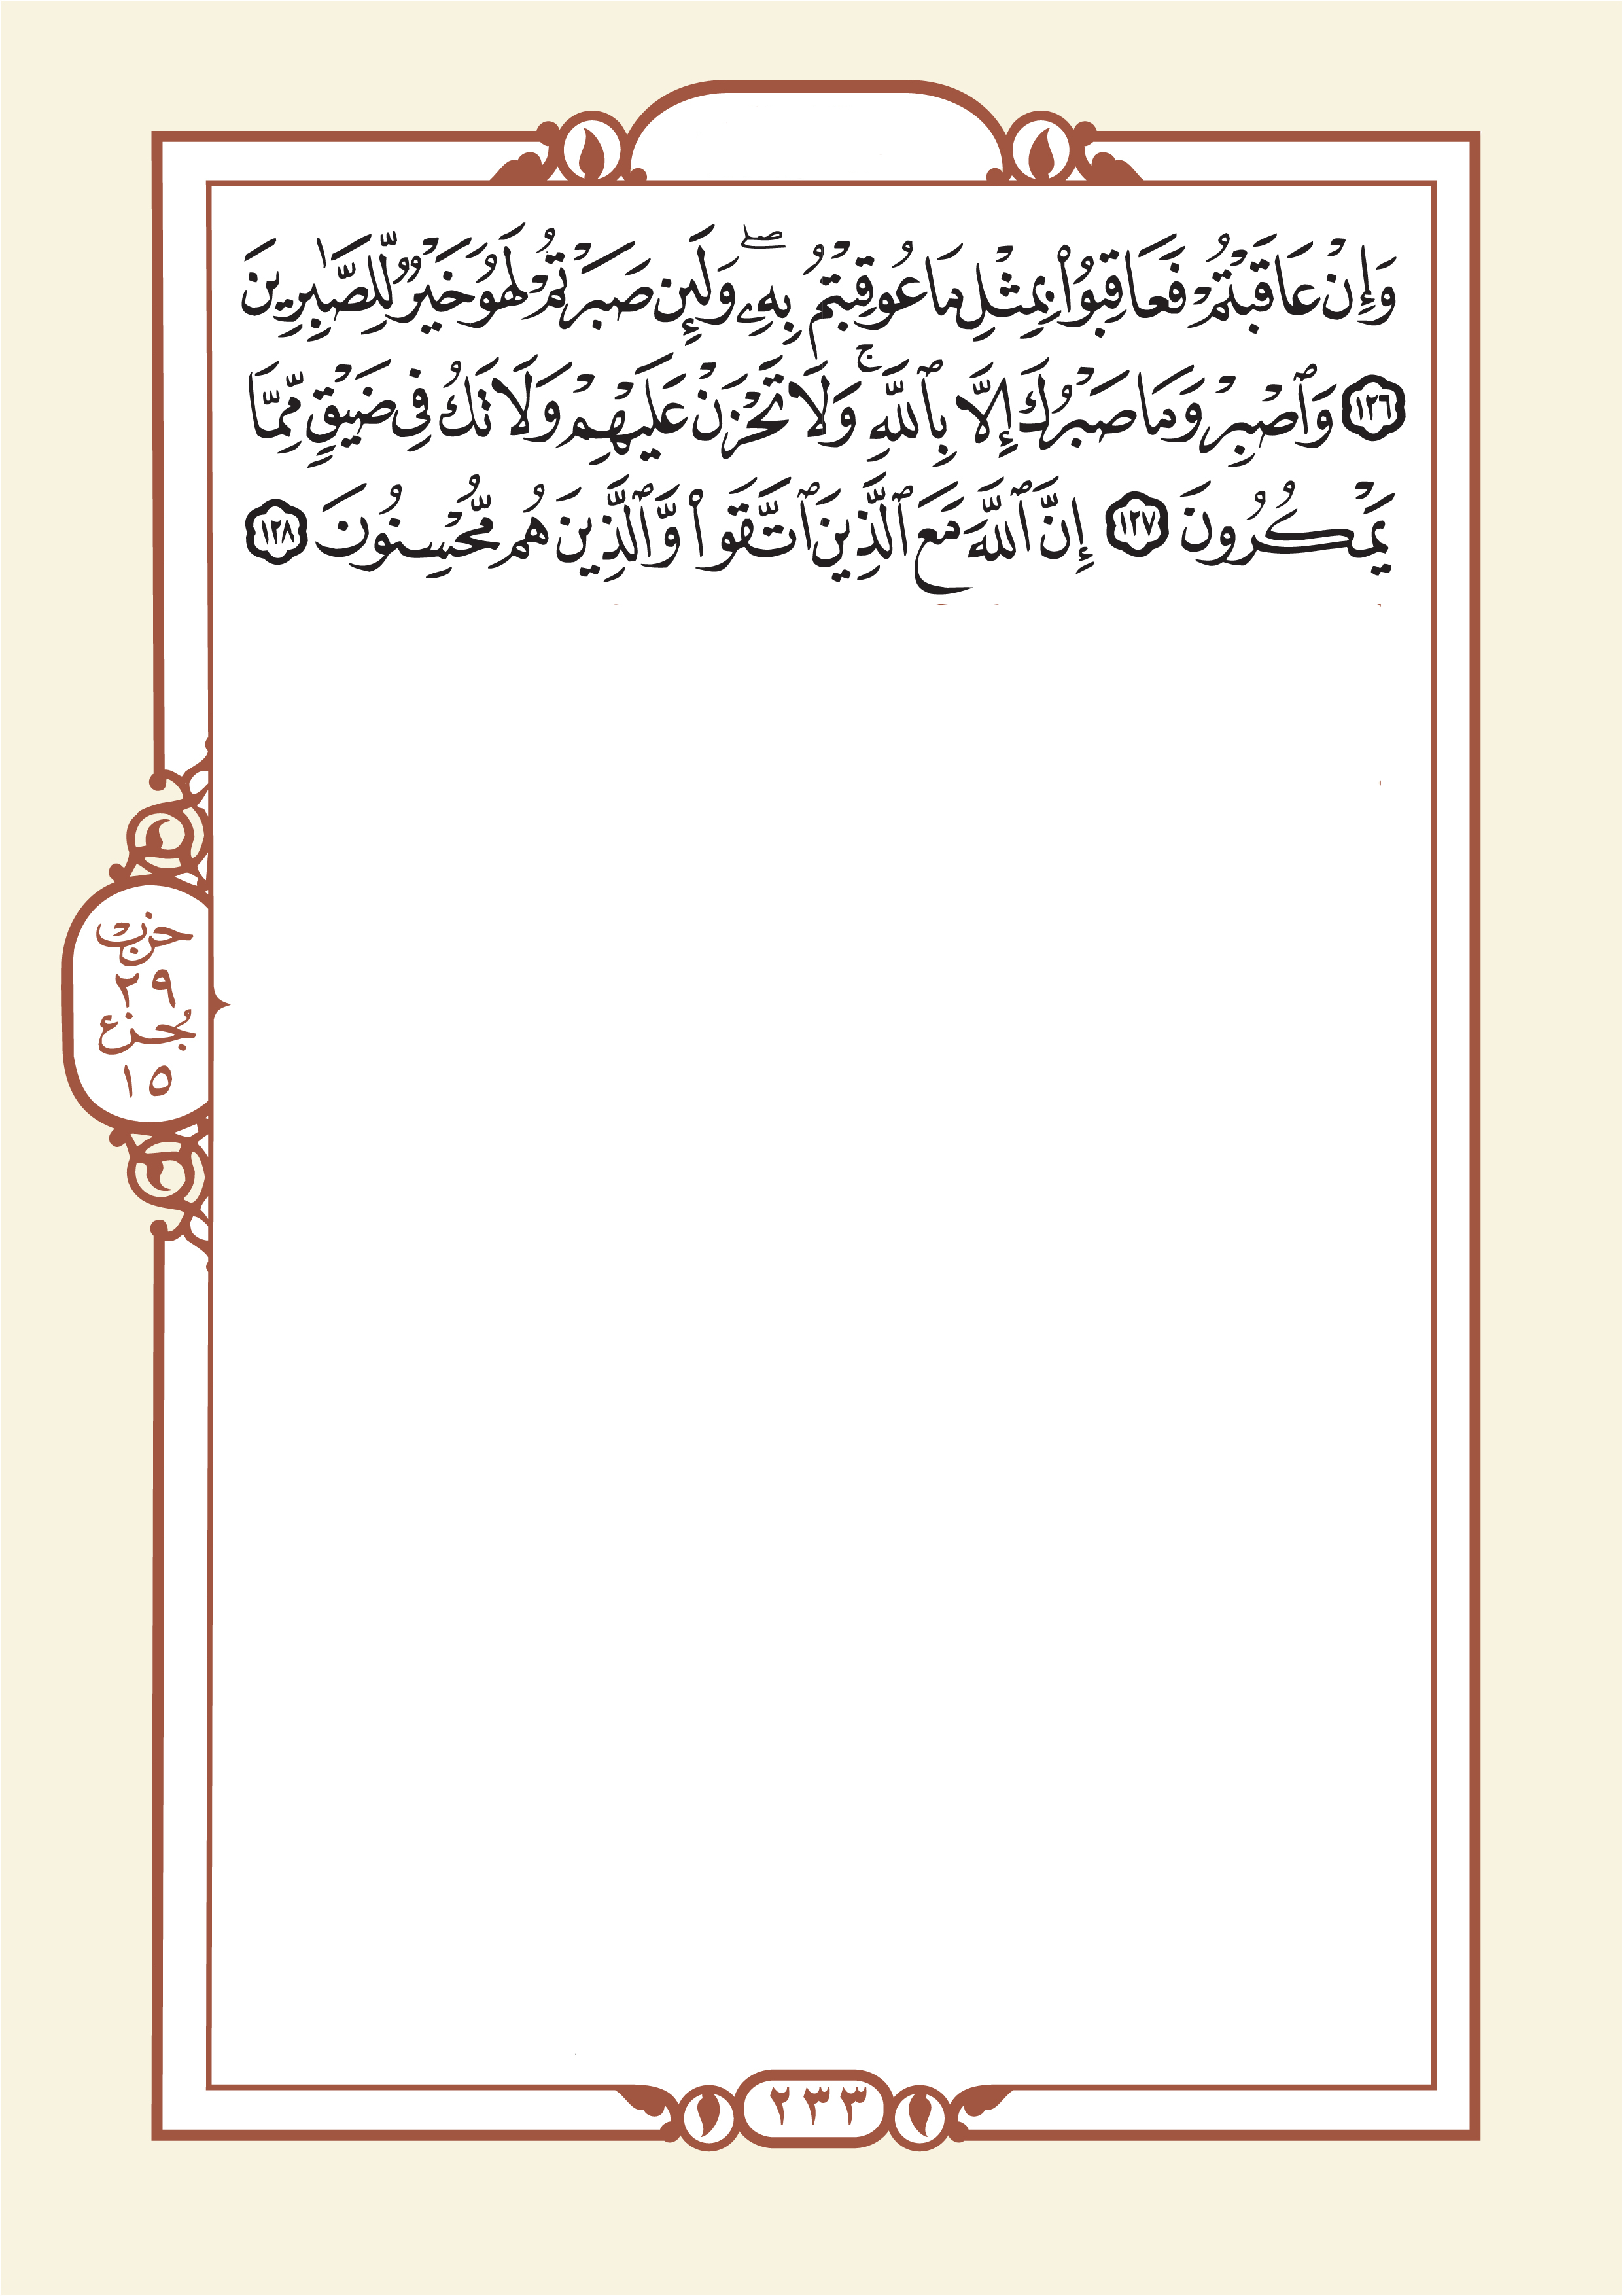 وَإِنْ عَاقَبْتُمْ فَعَاقِبُوا۟ بِمِثْلِ مَا عُوقِبْتُم بِهِۦ ۖ وَلَئِن صَبَرْتُمْ لَهُوَ خَيْرٌ لِّلصَّٰبِرِينَ
١٢٦ وَٱصْبِرْ وَمَا صَبْرُكَ إِلَّا بِٱللَّهِ ۚ وَلَا تَحْزَنْ عَلَيْهِمْ وَلَا تَكُ فِى ضَيْقٍ مِّمَّا
يَمْكُرُونَ ١٢٧ إِنَّ ٱللَّهَ مَعَ ٱلَّذِينَ ٱتَّقَوا۟ وَّٱلَّذِينَ هُم مُّحْسِنُونَ ١٢٨
حزب
٢٩
جُزء
١٥
٢٣٣